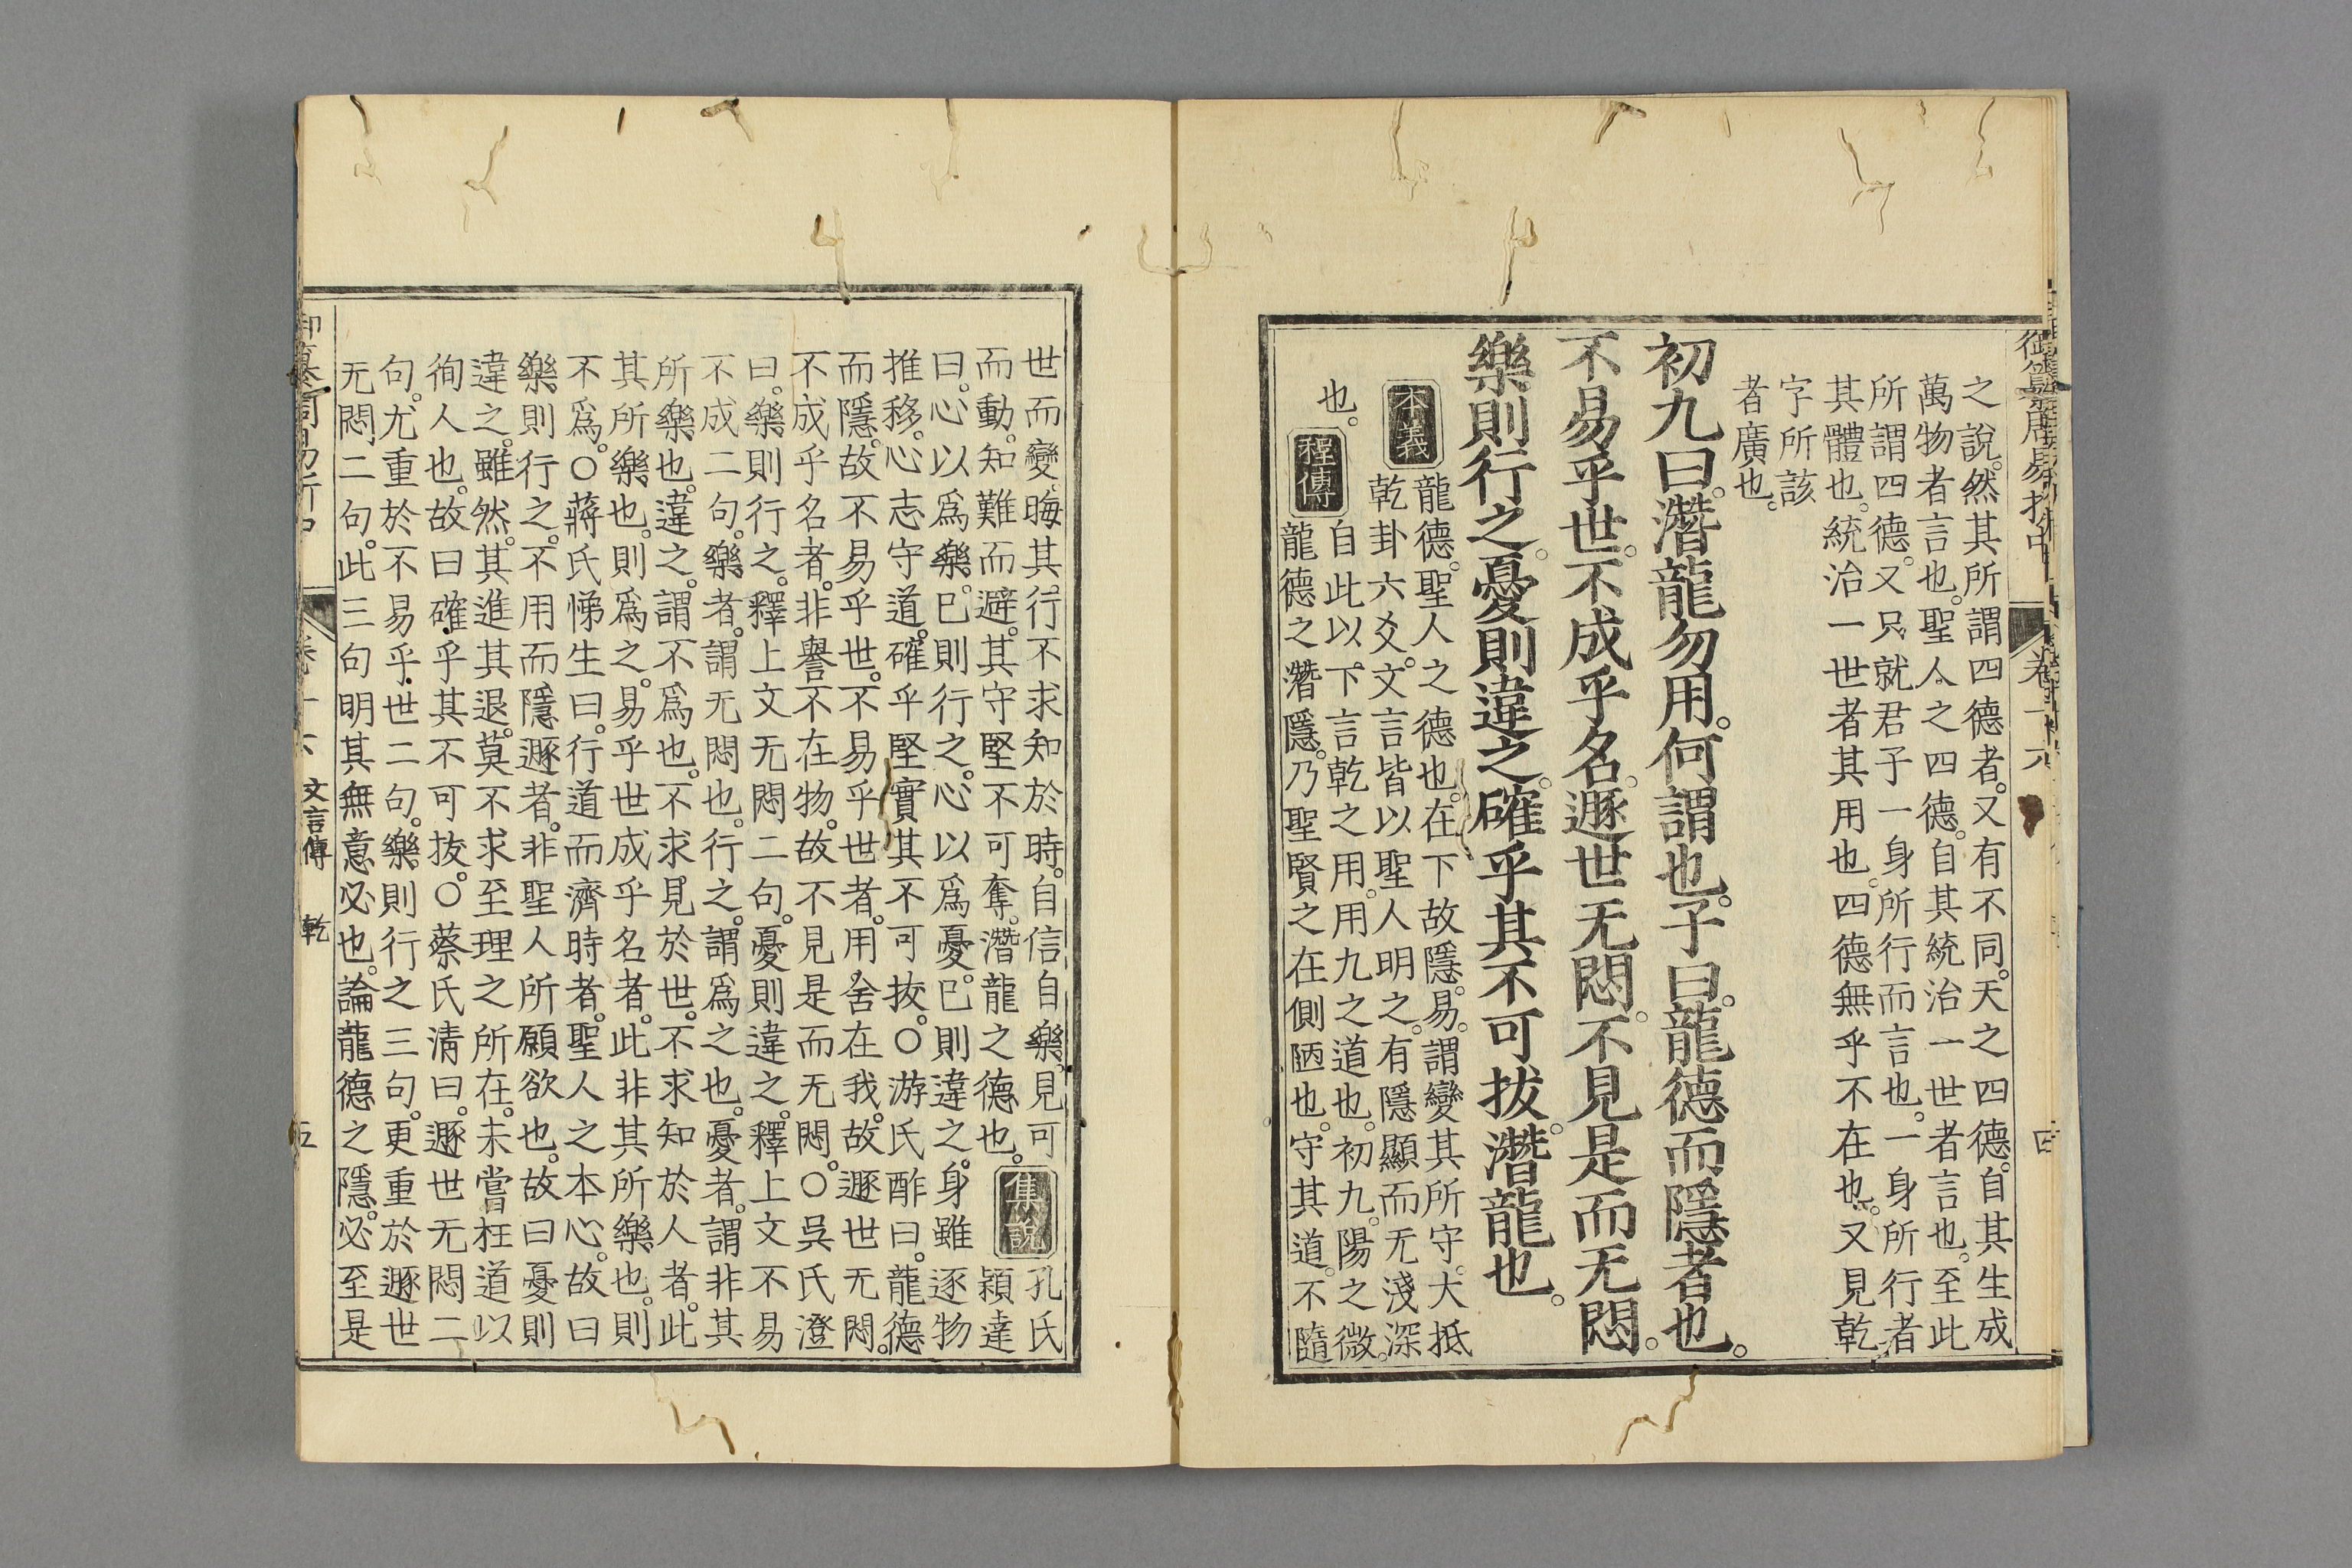 之說。然其所謂四德者。又有不同。天之四德。自其生成
萬物者言也。聖人之四德。自其統治一世者言也。至此
所謂四德。又只就君子一身所行而言也。一身所行者
其體也。統治一世者其用也。四德無乎不在也。又見乾
字所該
者廣也。
初九曰。潛龍勿用。何謂也。子曰。龍德而隱者也。
不易乎世。不成乎名。遯世无悶。不見是而无悶。
樂則行之。憂則違之。確乎其不可拔。潛龍也。
本義
龍德。聖人之德也。在下故隱。易。謂變其所守。大抵
乾卦六爻。文言皆以聖人明之。有隱顯而无淺深
也。
程傳
自此以下。言乾之用。用九之道也。初九。陽之微。
龍德之潛隱。乃聖賢之在側陋也。守其道。不隨
世而變。晦其行。不求知於時。自信自樂。見可
而動。知難而避。其守堅不可奪。潛龍之德也。
集說
孔氏
穎達
曰。心以爲樂。巳則行之。心以爲憂。巳則違之。身雖逐物
推移。心志守道。確乎堅實其不可拔。○游氏酢曰。龍德
而隱。故不易乎世。不易乎世者。用舍在我。故遯世无悶。
不成乎名者。非譽不在物。故不見是而无悶。○吳氏澄
曰。樂則行之。釋上文无悶二句。憂則違之。釋上文不易
不成二句。樂者。謂无悶也。行之。謂爲之也。憂者。謂非其
所樂也。違之。謂不爲也。不求見於世。不求知於人者。此
其所樂也。則爲之。易乎世成乎名者。此非其所樂也。則
不爲。○蔣氏悌生曰。行道而濟時者。聖人之本心。故曰
樂則行之。不用而隱遯者。非聖人所願欲也。故曰憂則
違之。雖然。其進其退。莫不求至理之所在。未嘗枉道以
徇人也。故曰確乎其不可拔。○蔡氏清曰。遯世无悶二
句。尤重於不易乎世二句。樂則行之三句。更重於遯世
无悶二句。此三句明其無意必也。論龍德之隱。必至是
文言傳 乾
五